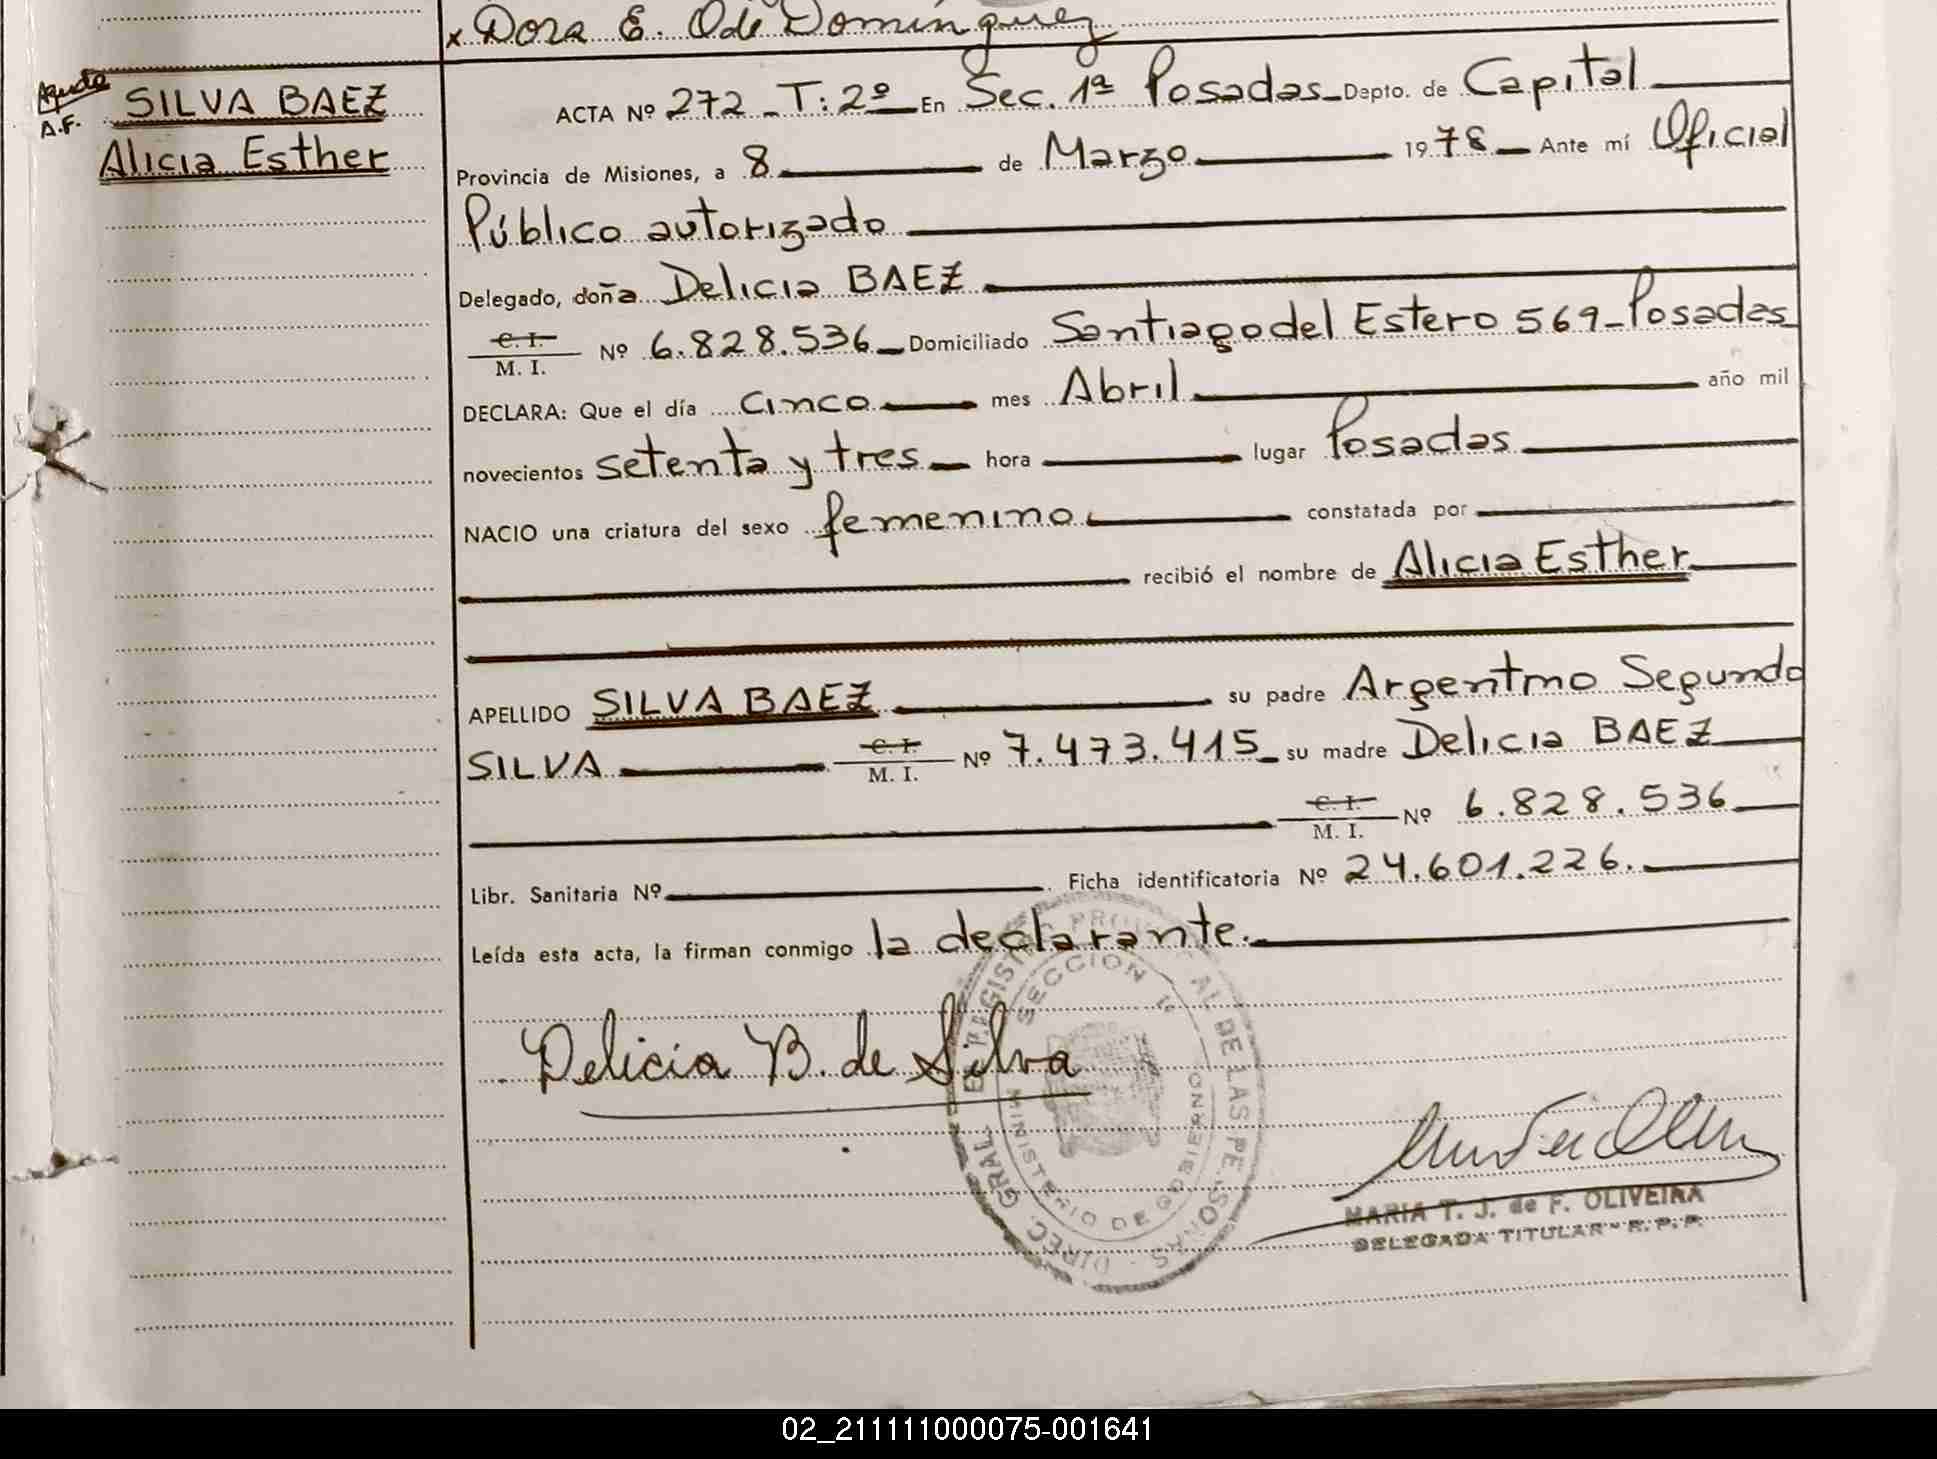 x Dora E. O de Domínguez
SILVA BAEZ
A.F.
Alicia Esther
ACTA Nº 272 _ T: 2º _ En Sec. 1ª Posadas _ Depto. de Capital
Provincia de Misiones, a 8 de Marzo 1978 _ Ante mí Oficial
Público autorizado
Delegado, doña Delicia BAEZ
C. I.
M. I. Nº 6.828.536 _ Domiciliado Santiago del Estero 569 _ Posadas _
DECLARA: Que el día cinco mes Abril año mil
novecientos setenta y tres _ hora lugar Posadas
NACIO una criatura del sexo femenino. constatada por
recibió el nombre de Alicia Esther
APELLIDO SILVA BAEZ su padre Argentino Segundo
SILVA C. I.
M. I. Nº 7.473.415 _ su madre Delicia BAEZ
C. I.
M. I. Nº 6.828.536
Libr. Sanitaria Nº Ficha identificatoria Nº 24.601.226.
Leída esta acta, la firman conmigo la declarante.
Delicia B. de Silva
DIREC. GRAL. DEL REGISTRO PROVINCIAL DE LAS PERSONAS
SECCION 1ª
MINISTERIO DE GOBIERNO
MARIA T. J. de F. OLIVEIRA
DELEGADA TITULAR - R. P. P.
02_211111000075-001641